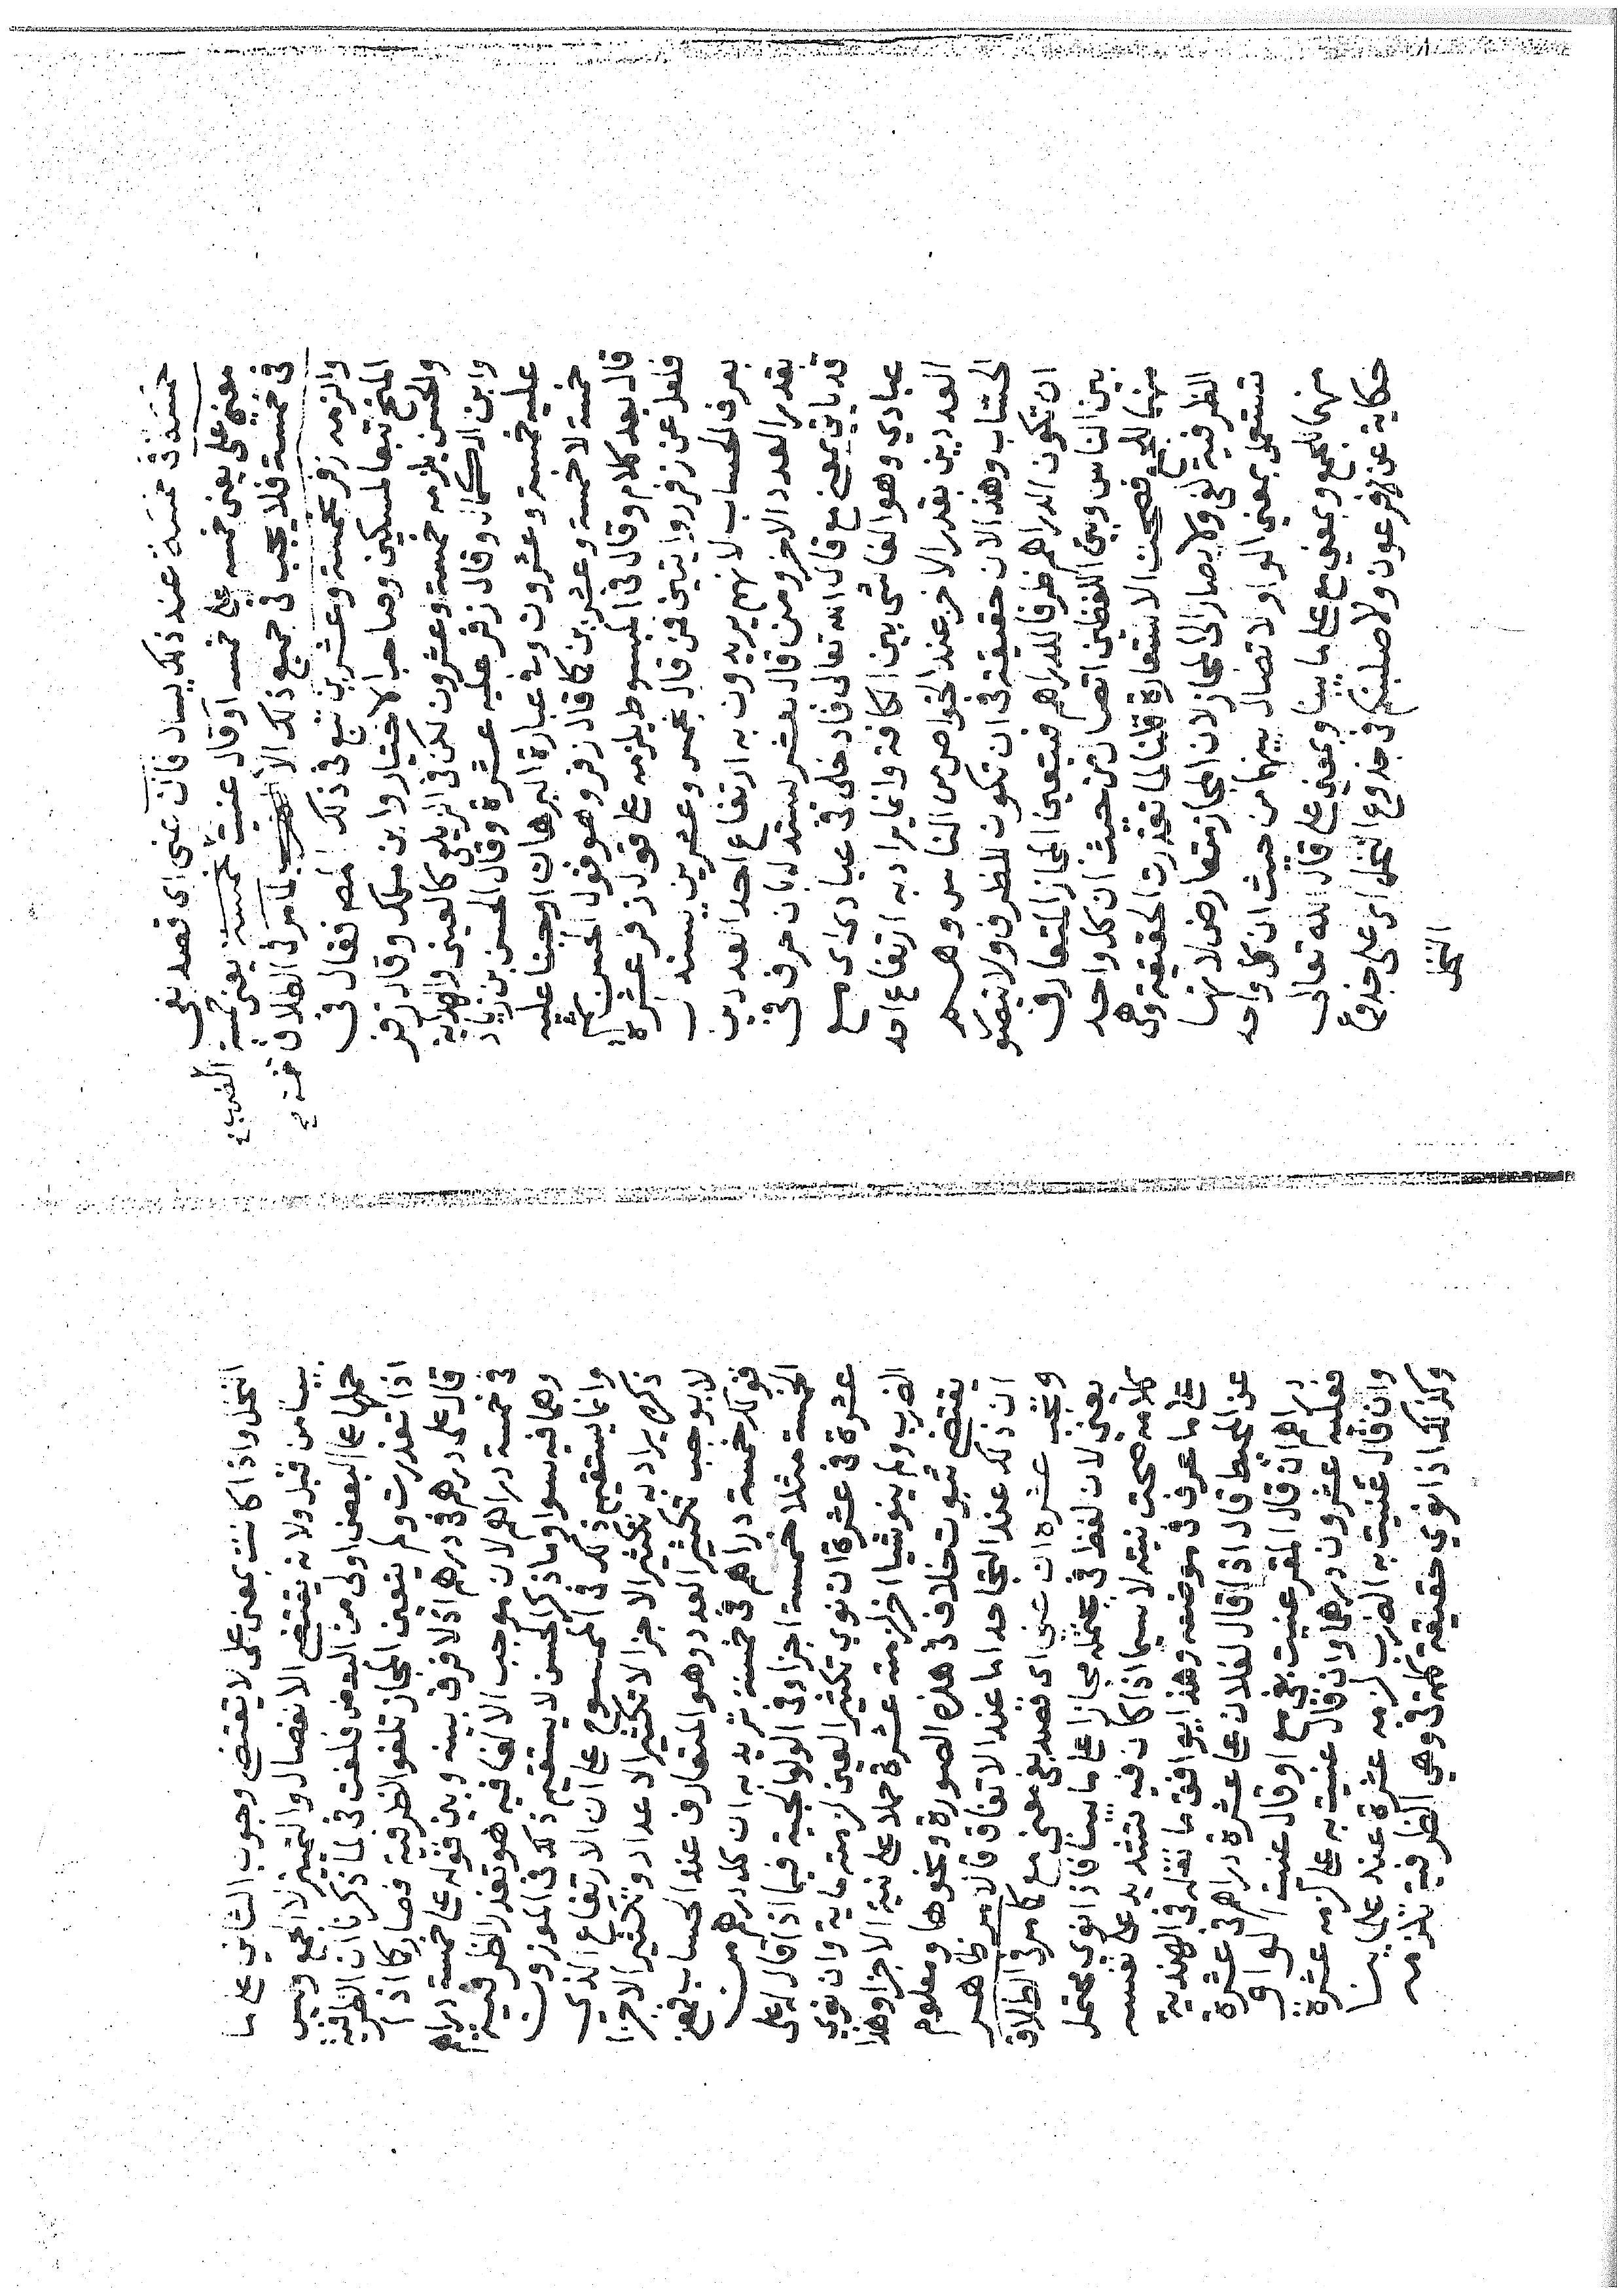 خمسة في خمسة عند ذلك يسال فان عنى اى قصد بفى
معنى على يعنى خمسه على خمسه او قال عنيت خمسة يعنى خمسة الضرب
في خمسة فلا يجب في جميع ذلك الا لمامر في الطلاق خمسة
والزمه زفر بخمسة وعشرين تبع في ذلك المص فقال في
المنح تبعا لمسكين وصاحب الاختيار وابن ملك وقال زفر
والحسن يلزمه خمسة وعشرون لكن في الزيلعي كالعيني والهداية
وابن الكمال وقال زفر عليه عشرة وقال الحسن بن زياد
عليه خمسة وعشرون وفي عبارة البرهان اوجبنا عليه
خمسة لا خمسة وعشرين كما قال زفر وهو قول الحسن
قال بعد كلام وقال في المبسوط يلزمه على قول زفر عشرة
فلعل عن زفر روايتين فمن قال بخمس وعشرين يستدل
بعرف الحساب لانهم يريدون به ارتفاع احد العددين
بقدر العدد الاخر ومن قال بعشر يستدل بان حرف في
قد ياتي بمعنى مع قال الله تعالى فادخلى في عبادى اى مع
عبادي وهو الفاشى بين الكافة وانما يراد به ارتفاع احد
العددين بقدر الاخر عند الخواص من الناس وهم
الحساب وهذا لان حقيقة في ان تكون للظرف ولا يتصو
ان تكون الدراهم ظرفا للدراهم فيتعين المجاز المتعارف
بين الناس وبين اللفظين اتصال من حيث ان كل واحد
منهما للجمع فصحت الاستعارة قلنا لما تعذرت الحقيقة وهي
الظرفية لغى ولا يصار الى المجاز لان المجاز متعارض لانها
تستعمل بمعنى الواو لاتصال بينهما من حيث ان كل واحد
منهما للجمع وبمعنى مع على ما بينا وبمعنى على قال الله تعالى
حكاية عن فرعون ولاصلبنكم في جذوع النخل اى على جذوع
النخل
النخل واذا كانت بمعنى على لا يقتضى وجوب الشانى على ما
بينا من قبل ولانه يقتضى الانفصال والتمييز لا الجمع وليس
حملها على البعض اولى من البعض فلغت في لما ذكرنا ان الظرفية
اذا تعذرت ولم يتعين المجاز تلغوا الظرفية فصار كما اذا
قال على درهم في درهم اذ لا فرق بينه وبين قوله على خمسة دراهم
في خمسة دراهم لان موجب الالغا فيه هو تعذر الظرفية
وهما فيه سوا وما ذكر الحسن لا يستقيم ذلك في الموزون
وانما يستقيم ذلك في الممسوح على ان الارتفاع الذي
ذكره يراد به تكثير الاجزا لا تكثير الاعداد وتكثير الاجزا
لا يوجب تكثير العدد وهو المتعارف عند الحساب فمعنى
قولك خمسة دراهم في خمسة تريد به ان كل درهم من
الخمسة مثلا خمسة اجزا وفي الولوالجية فيما اذا قال له على
عشرة في عشرة ان نوى تكثير العين لزمته ماية وان نوى
الضرب ولم ينو شيا اخر لزمته عشرة حملا على نية الاجزا وهذا
يقتضى ثبوت خلاف في هذه الصورة ونحوها ومعلوم
ان ذلك عند التجاحد اما عند الاتفاق فالامر ظاهر
ويجب عشرة ان عنى اى قصد بفى معنى مع كما مر في الطلاق
يعنى لان لفظ في يحتمله مجازا على ما بينا فاذا نوى محتمل
كلامه صحت نيته لا سيما اذا كان فيه تشديد على نفسه
على ما عرف في موضعه وهذا يوافق ما نقله في الهندية
عن المحيط قال اذا قال لفلان على عشرة دراهم في عشرة
دراهم ان قال المقر عنيت بفى مع او قال عنيت الواو
فعليه عشرون درهما وان قال عنيت به على لزمه عشرة
وان قال عنيت به الضرب لزمه عشرة عند علماينا
وكذلك اذا نوى حقيقة كلمة في وهي الظرفية تلزمه